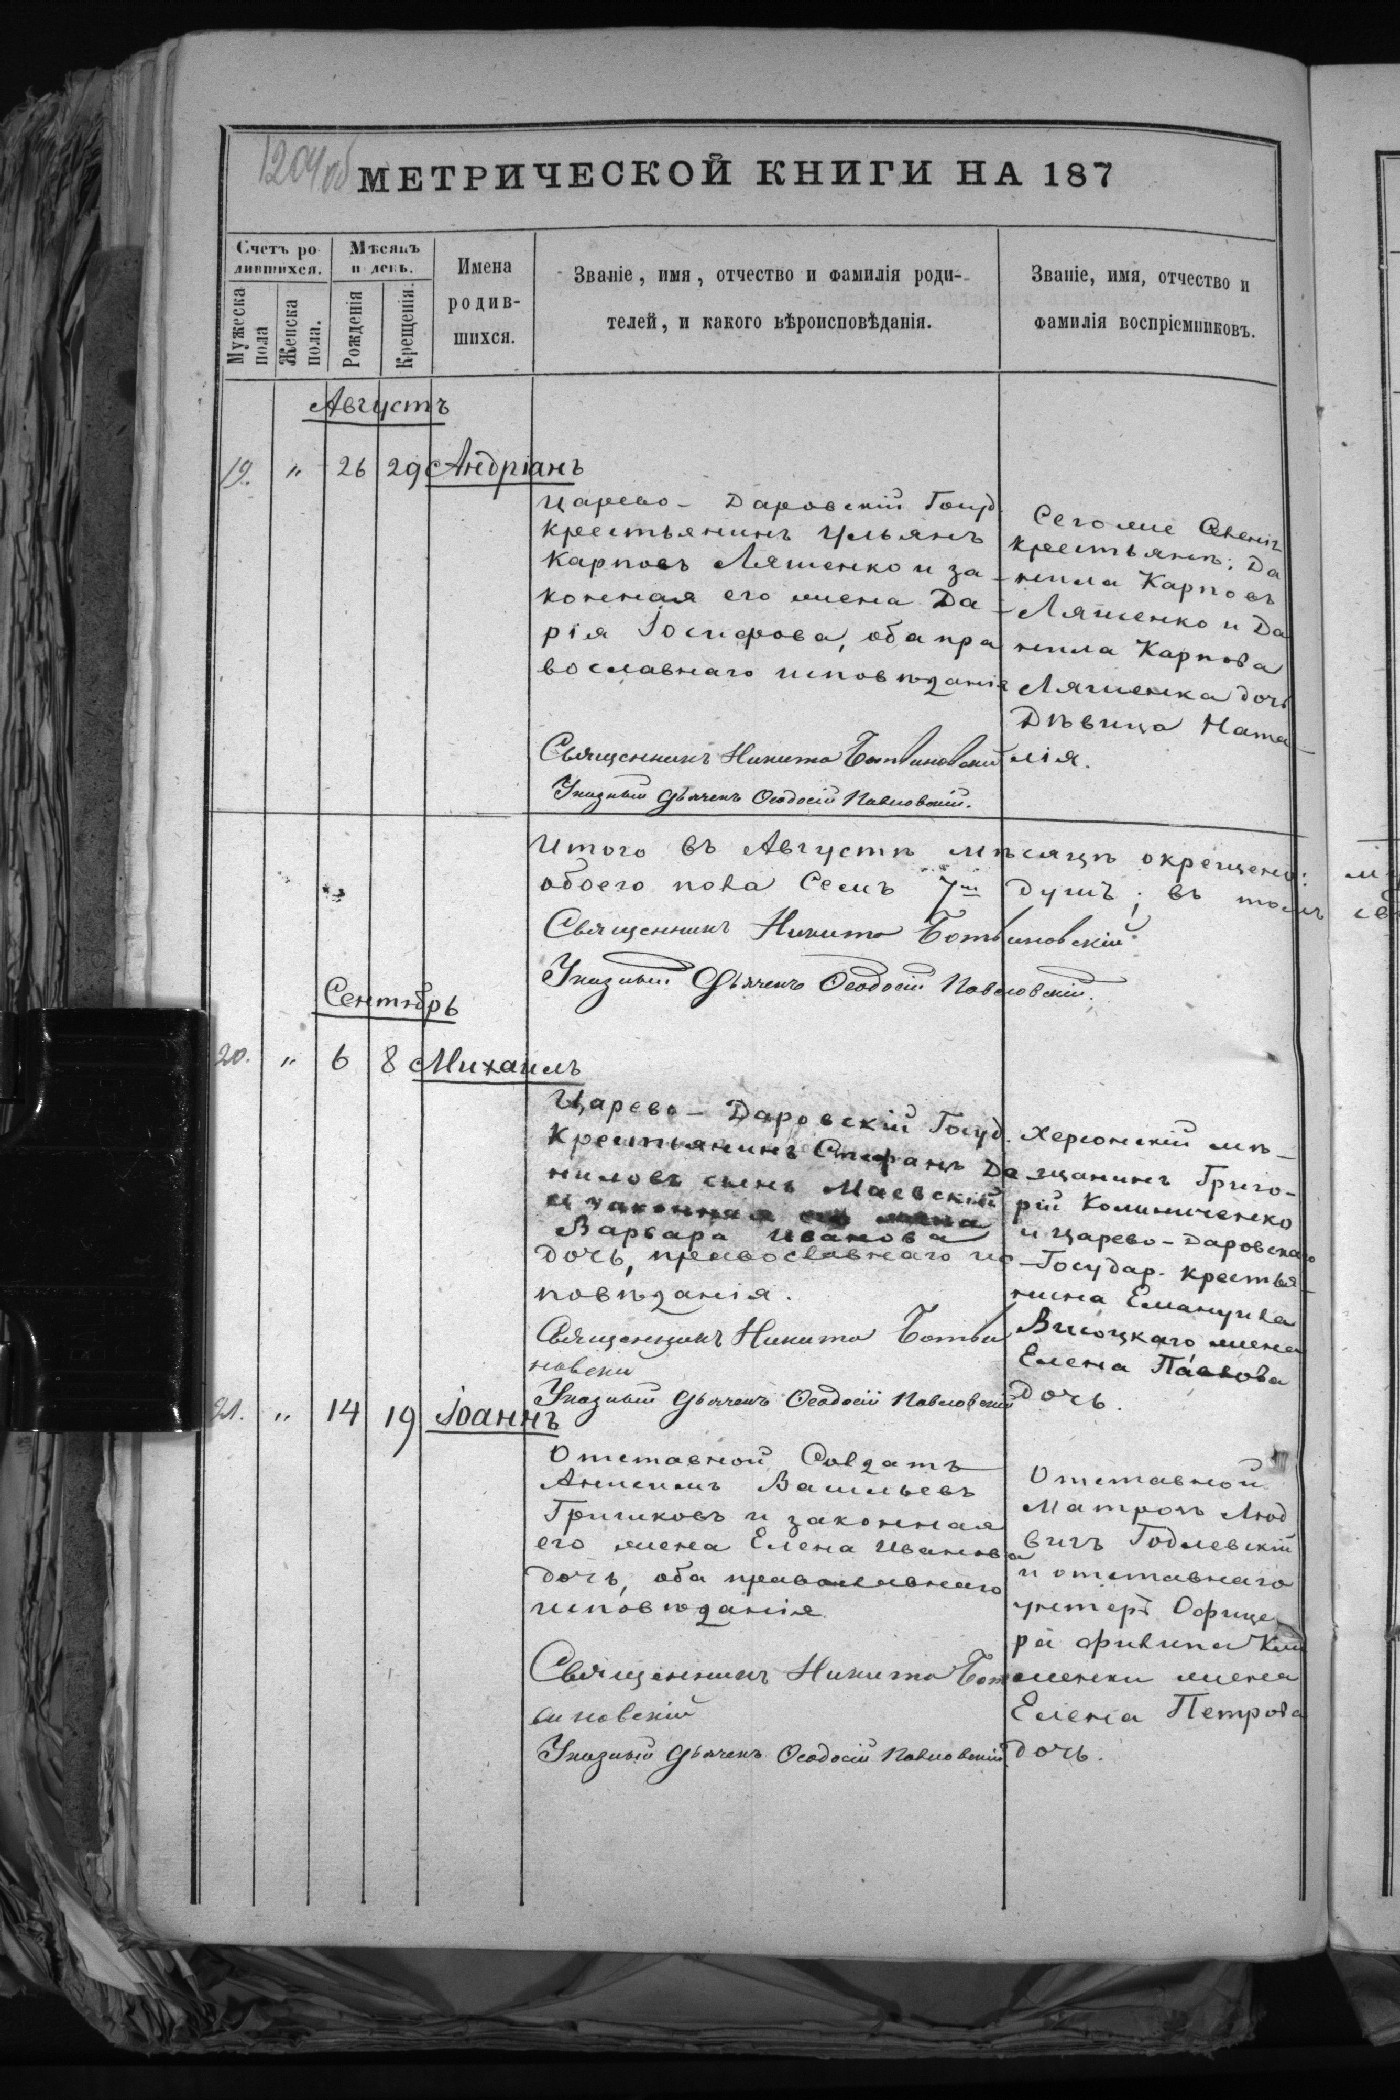 1204об
МЕТРИЧЕСКОЙ КНИГИ НА 187
Счетъ ро
дившихся.
Мѣсяцъ
и день.
Мужеска
пола
Женска
пола.
Рожденія
Крещенія.
Имена
родив-
шихся.
Званіе, имя, отчество и фамилія роди-
телей, и какого вѣроисповѣданія.
Званіе, имя, отчество и
фамилія воспріемниковъ.
Августъ
19. " 26 29 Андріанъ
Царево-Даровскій Госуд
крестьянинъ Ульянъ
Карповъ Ляшенко и за-
конная его жена Да-
рія Іосифова, оба пра
вославнаго исповѣданія
Священникъ Никита Ботвиновскій
Указный Дьячекъ Ѳеодосій Павловскій.
Сего же
крестьянъ: Да
нила Карповъ
Ляшенко и Да
нила Карпова
Ляшенка дочь
Дѣвица Ната-
лія.
Итого въ Августѣ мѣсяцѣ окрещено:
обоего пола Семь 7мь душъ; въ томъ
Священникъ Никита Ботвиновскій
Указный Дьячекъ Ѳеодосій Павловскій.
Сентябрь
20. " 6 8 Михаилъ
Царево-Даровскій Госуд.
Крестьянинъ Стефанъ Да
ниловъ сынъ Маевскій
и законная его жена
Варвара Иванова
дочь, православнаго ис-
повѣданія.
Священникъ Никита Ботви
новскій
Указный Дьячекъ Ѳеодосій Павловскій
Херсонскій мѣ-
щанинъ Григо-
рій Колиниченко
и Царево-Даровскаго
Государ. крестья-
нина Емануила
Висоцкаго жена
Елена Павлова
дочь.
21. " 14 19 Іоаннъ
Отставной Солдатъ
Анисимъ Васильевъ
Гришковъ и законная
его жена Елена Иванова
дочь, оба православнаго
исповѣданія
Священникъ Никита Бот
виновскій
Указный Дьячекъ Ѳеодосій Павловскій
Отставной
Матрозъ Люд
вигъ Годлевскій
и отставнаго
унтеръ Офице
ра Филипа Кли
менки жена
Елена Петрова
дочь.